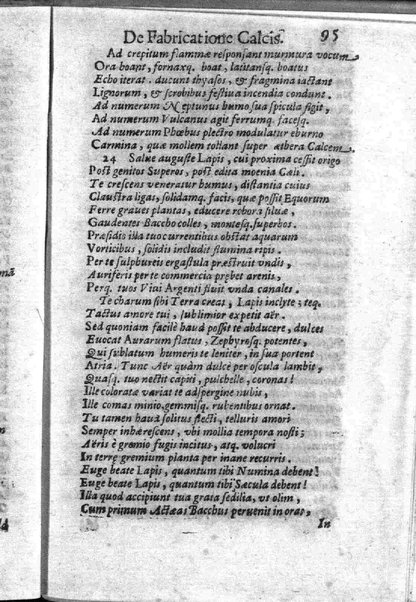 De Fabricatione Calcis. 95
Ad crepitum flammæ responsant murmura vocum
Ora boant, fornaxq. boat, latitansq. boatus
Echo iterat. ducunt thyasos, & fragmina iactant
Lignorum, & scrobibus festiua incendia condunt.
Ad numerum Neptunus humo sua spicula figit,
Ad numerum Vulcanus agit ferrumq. facesq.
Ad numerum Phœbus plectro modulatur eburno
Carmina, quæ mollem tollant super æthera Calcem
24 Salue auguste Lapis, cui proxima cessit origo
Post genitos Superos, post edita moenia Cæli.
Te crescens veneratur humus, distantia cuius
Claustra ligas, solidamq. facis, quæ possit Equorum
Ferre graues plantas, educere robora siluæ,
Gaudentes Baccho colles, montesq. superbos.
Præsidio illa tuo currentibus obstat aquarum
Vorticibus, solidis includit flumina ripis.
Per te sulphureis ergastula præstruit vndis,
Auriferis per te commercia præbet arenis,
Perq. tuos Viui Argenti fluit vnda canales.
Te charum sibi Terra creat, Lapis inclyte; teq.
Tactus amore tui, sublimior expetit aër.
Sed quoniam facilè haud possit te abducere, dulces
Euocat Aurarum flatus, Zephyrosq. potentes,
Qui sublatum humeris te leniter, in sua portent
Atria. Tunc Aër quàm dulce per oscula lambit,
Quasq. tuo nectit capiti, pulchelle, coronas!
Ille coloratæ variat te adspergine nubis,
Ille comas minio, gemmisq. rubentibus ornat.
Tu tamen haud solitus flecti, telluris amori
Semper inhærescens, vbi mollia tempora nosti;
Aëris è gremio fugis incitus, atq. volucri
In terræ gremium planta per inane recurris.
Euge beate Lapis, quantum tibi Numina debent!
Euge beate Lapis, quantum tibi Sæcula debent!
Illa quod accipiunt tua grata sedilia, vt olim,
Cum primum Actæas Bacchus peruenit in oras,
In